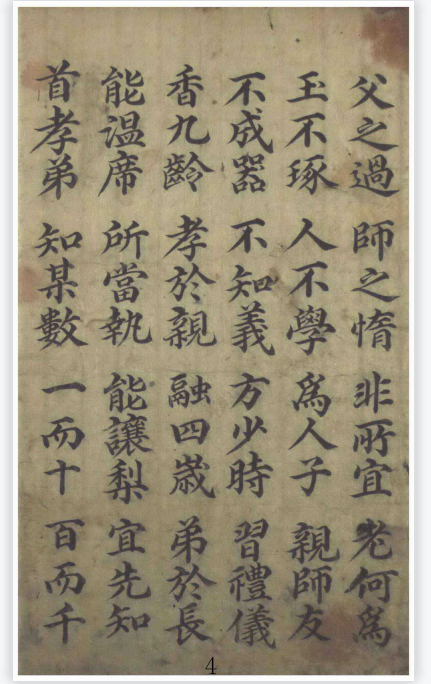 父之過 師之惰 非所宜 老何爲
玉不琢 人不學 爲人子 親師友
不成器 不知義 方少時 習禮儀
香九齡 孝於親 融四歲 弟於長
能温席 所當執 能讓梨 宜先知
首孝弟 知某數 一而十 百而千
4